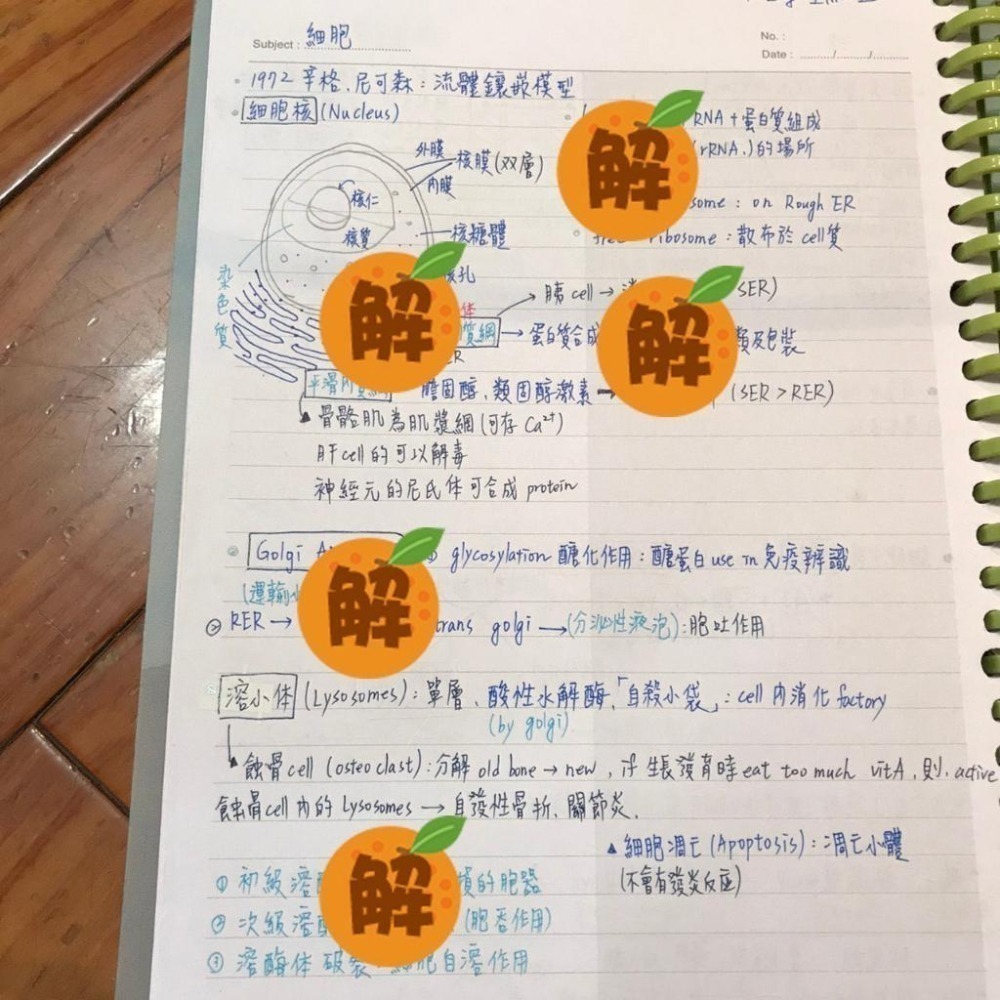 Subject : 細胞
No. :
Date :
1972 辛格、尼可森：流體鑲嵌模型
細胞核 (Nucleus)
RNA + 蛋白質組成
(rRNA.) 的場所
some : on Rough ER
ribosome : 散布於 cell質
外膜
內膜
核膜(双層)
核仁
核質
核糖體
核孔
染色質
体
胰 cell →
(SER)
質網 → 蛋白質合成
類及包裝
ER
平滑內質
膽固醇、類固醇激素 →
(SER > RER)
▲ 骨骼肌為肌漿網 (可存 Ca²⁺)
肝 cell 的可以解毒
神經元的尼氏体可合成 protein
Golgi A
glycosylation 醣化作用：醣蛋白 use in 免疫辨識
(運輸小
RER →
trans golgi → (分泌性液泡) : 胞吐作用
溶小体 (Lysosomes) : 單層、酸性水解酶、「自殺小袋」: cell 內消化 factory
(by golgi)
▲ 蝕骨 cell (osteoclast) : 分解 old bone → new , if 生長發育時 eat too much vitA , 則. active
蝕骨 cell 內的 Lysosomes → 自發性骨折、關節炎.
▲ 細胞凋亡 (Apoptosis) : 凋亡小體
(不會有發炎反應)
① 初級溶
的胞器
② 次級溶
(胞吞作用)
③ 溶酶体 破裂
細胞自溶作用
解
解
解
解
解